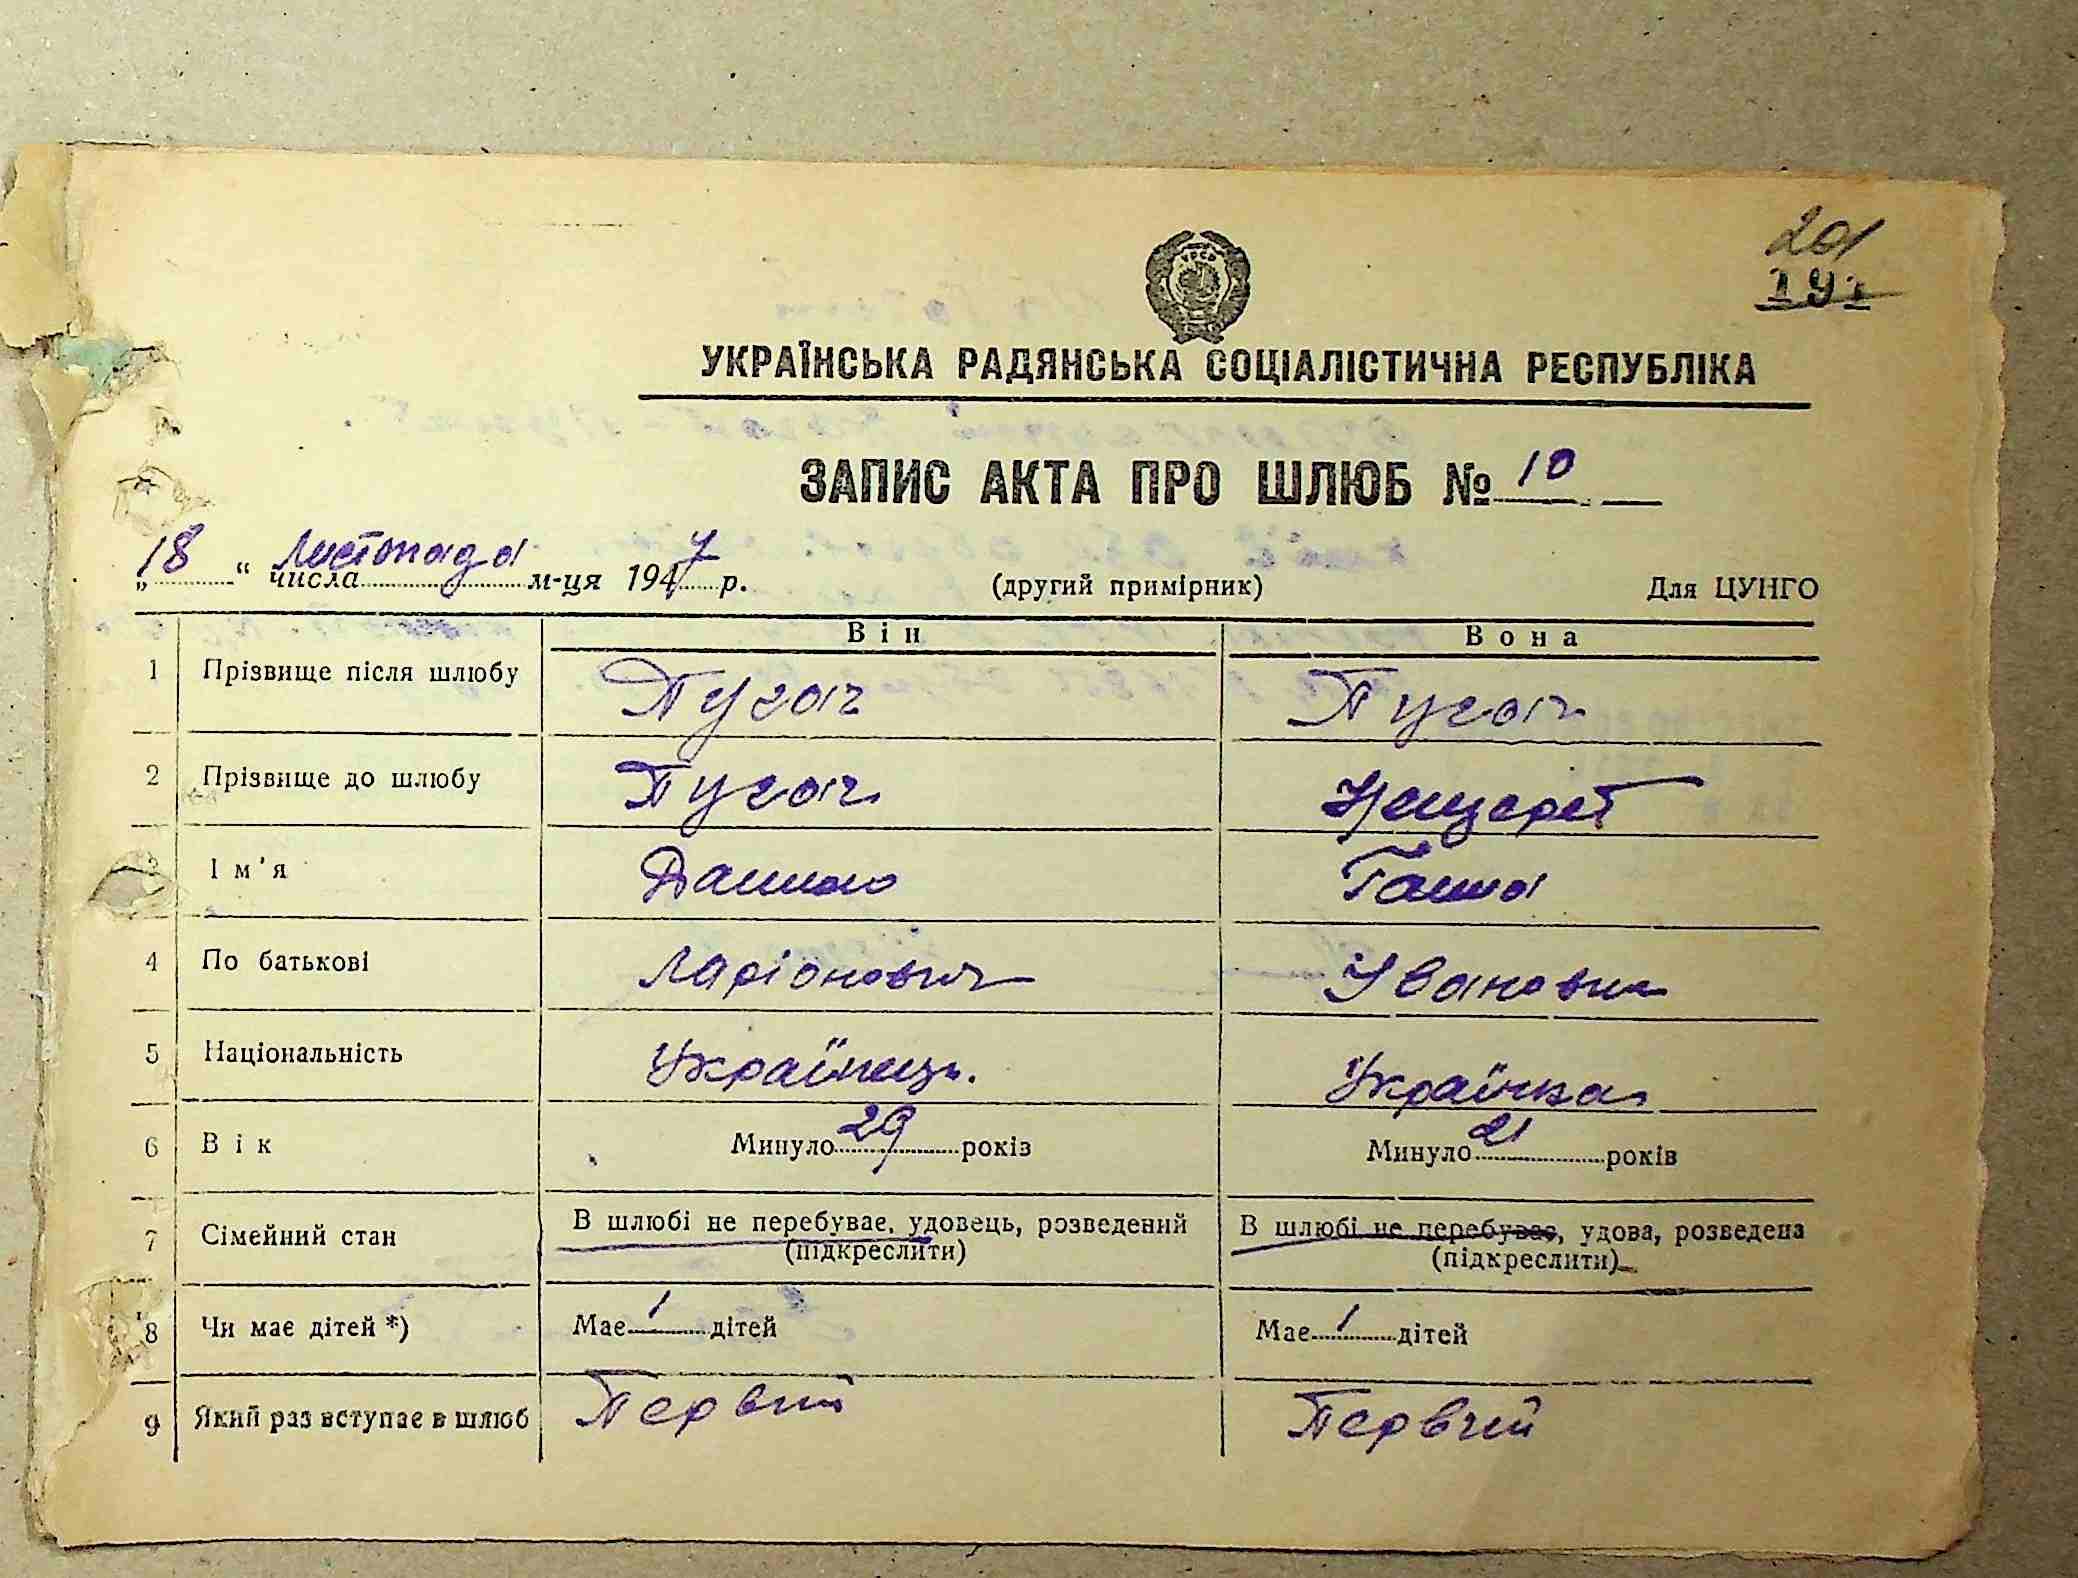 201
УРСР
УКРАЇНСЬКА РАДЯНСЬКА СОЦІАЛІСТИЧНА РЕСПУБЛІКА
ЗАПИС АКТА ПРО ШЛЮБ № 10
„18“ числа Листопада м-ця 1947 р. (другий примірник) Для ЦУНГО
Він Вона
1 Прізвище після шлюбу Пугач Пугач
2 Прізвище до шлюбу Пугач
3 Ім'я Данило Ганна
4 По батькові Ларіонович Ивановна
5 Національність Українець. Українка
6 Вік Минуло 29 років Минуло 21 років
7 Сімейний стан В шлюбі не перебуває, удовець, розведений В шлюбі не перебуває, удова, розведена
(підкреслити) (підкреслити)
8 Чи має дітей *) Має 1 дітей Має 1 дітей
9 Який раз вступає в шлюб Первий Первий